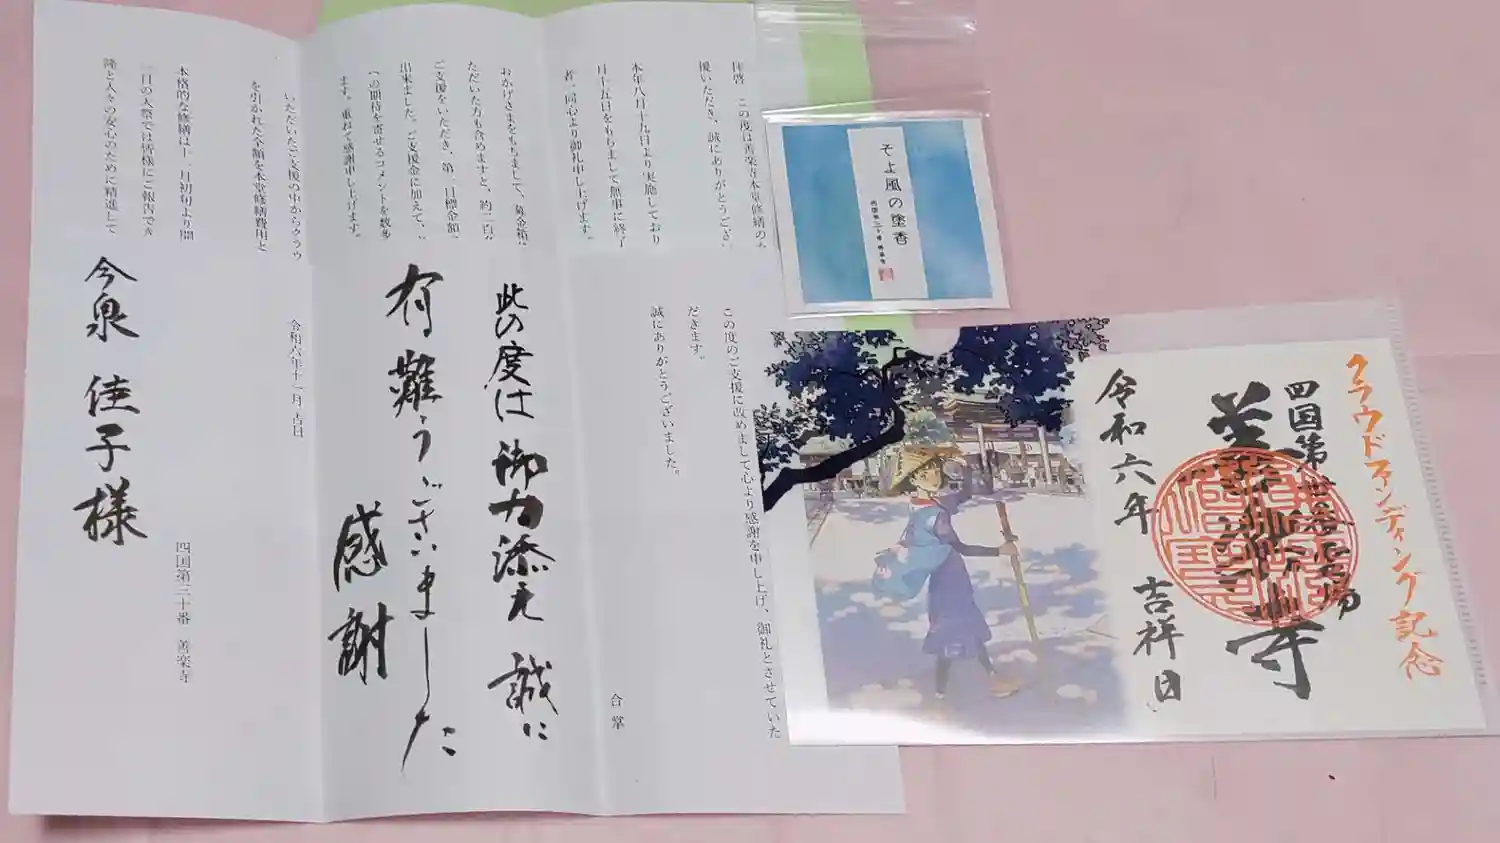 拝啓 この度は善楽寺本堂修繕の
援いただき、誠にありがとうござい
本年八月十九日より実施しており
月十五日をもちまして無事に終了
者一同心より御礼申し上げます。
おかげさまをもちまして、募金箱
ただいた方も含めますと、約二百
ご支援をいただき、第一目標金額
出来ました。ご支援金に加えて、
への期待を寄せるコメントを数多
ます。重ねて感謝申し上げます。
いただいたご支援の中からクラウ
を引かれた全額を本堂修繕費用と
本格的な修繕は十一月初旬より開
一日の大祭では皆様にご報告でき
隆と人々の安心のために精進して
この度のご支援に改めまして心より感謝を申し上げ、御礼とさせていた
だきます。
誠にありがとうございました。
合掌
此の度は御力添え誠に
有難うございました
感謝
令和六年十一月吉日
四国第三十番 善楽寺
今泉佳子様
そよ風の塗香
四国第三十番 善楽寺
クラウドファンディング記念
四国第三十番霊場
善楽寺
令和六年 吉祥日